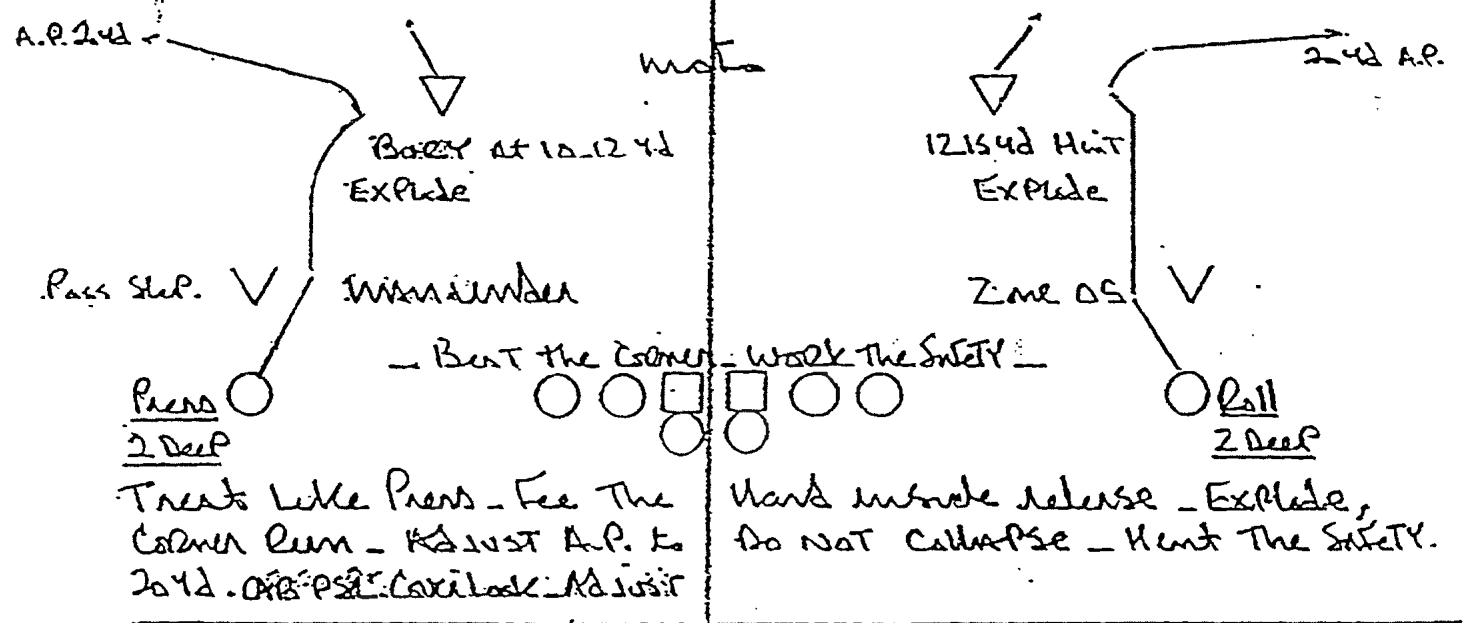 A.P. 20yd
20yd A.P.
Body At 10-12 yd
Explode
12-15 yd Hint
Explode
Pass Step.
Zone OS
- Beat the Corner - Work The Safety -
Press
2 Deep
Roll
2 Deep
Treat Like Press - The
Corner Run - Adjust A.P. to
20yd. Look - Adjust
Hard inside release - Explode,
Do Not Collapse - The Safety.